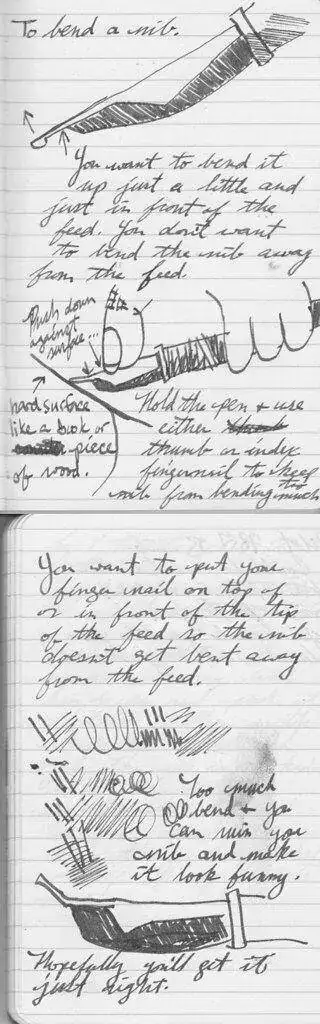 To bend a nib.
You want to bend it
up just a little and
just in front of the
feed. You don't want
to bend the nib away
from the feed.
Push down
against
surface...
hard surface
like a book or
piece
of wood.
Hold the pen + use
either
thumb or index
fingernail to keep
nib from bending too much
You want to put your
finger nail on top of
or in front of the tip
of the feed so the nib
doesn't get bent away
from the feed.
Too much
bend + you
can ruin you
nib and make
it look funny.
Hopefully you'll get it
just right.